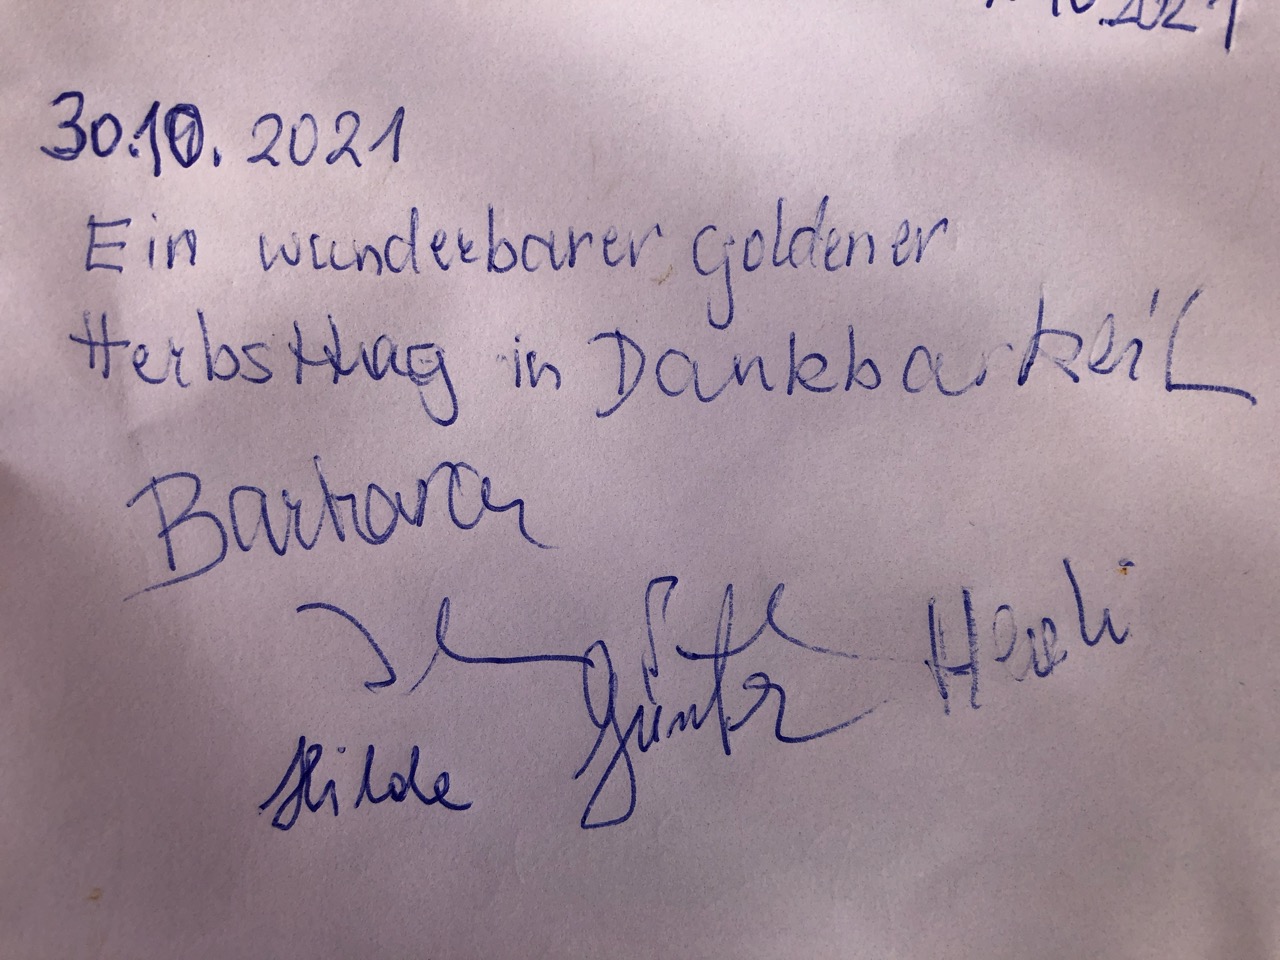 10.2021
30.10. 2021
Ein wunderbarer goldener
Herbsttag in Dankbarkeit
Barbara
Günter
Hilde